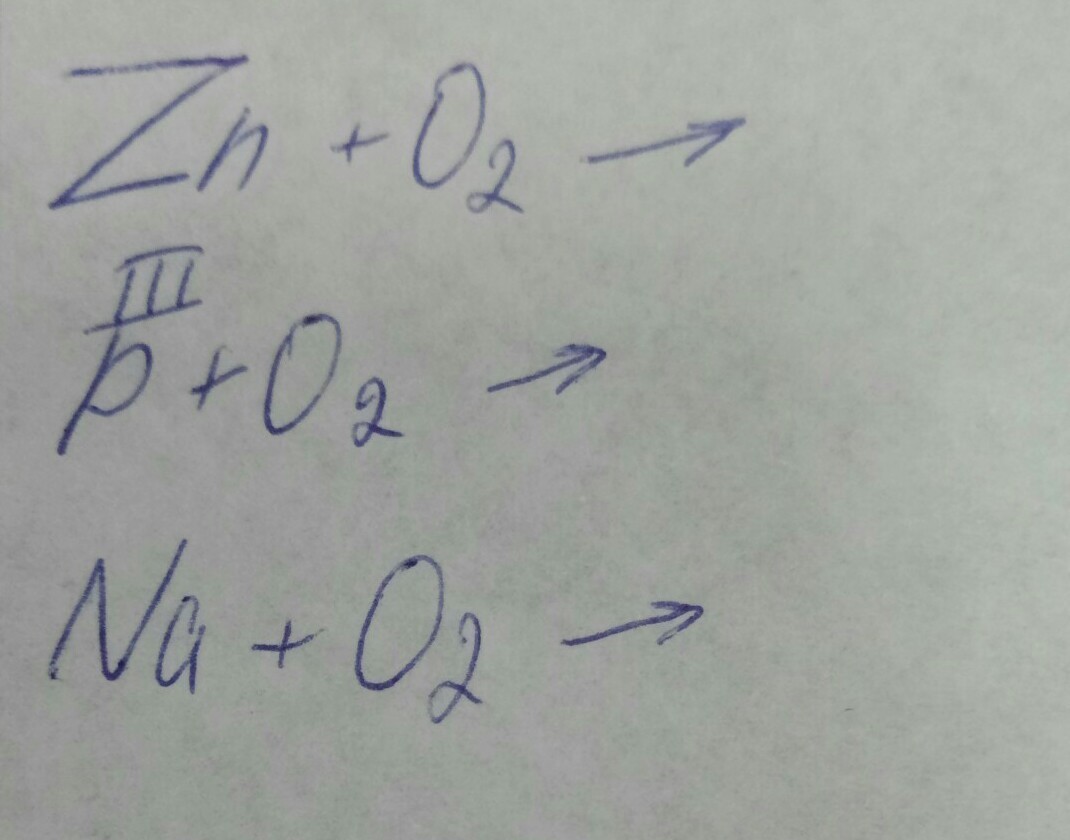 Zn + O₂ →
III
P + O₂ →
Na + O₂ →